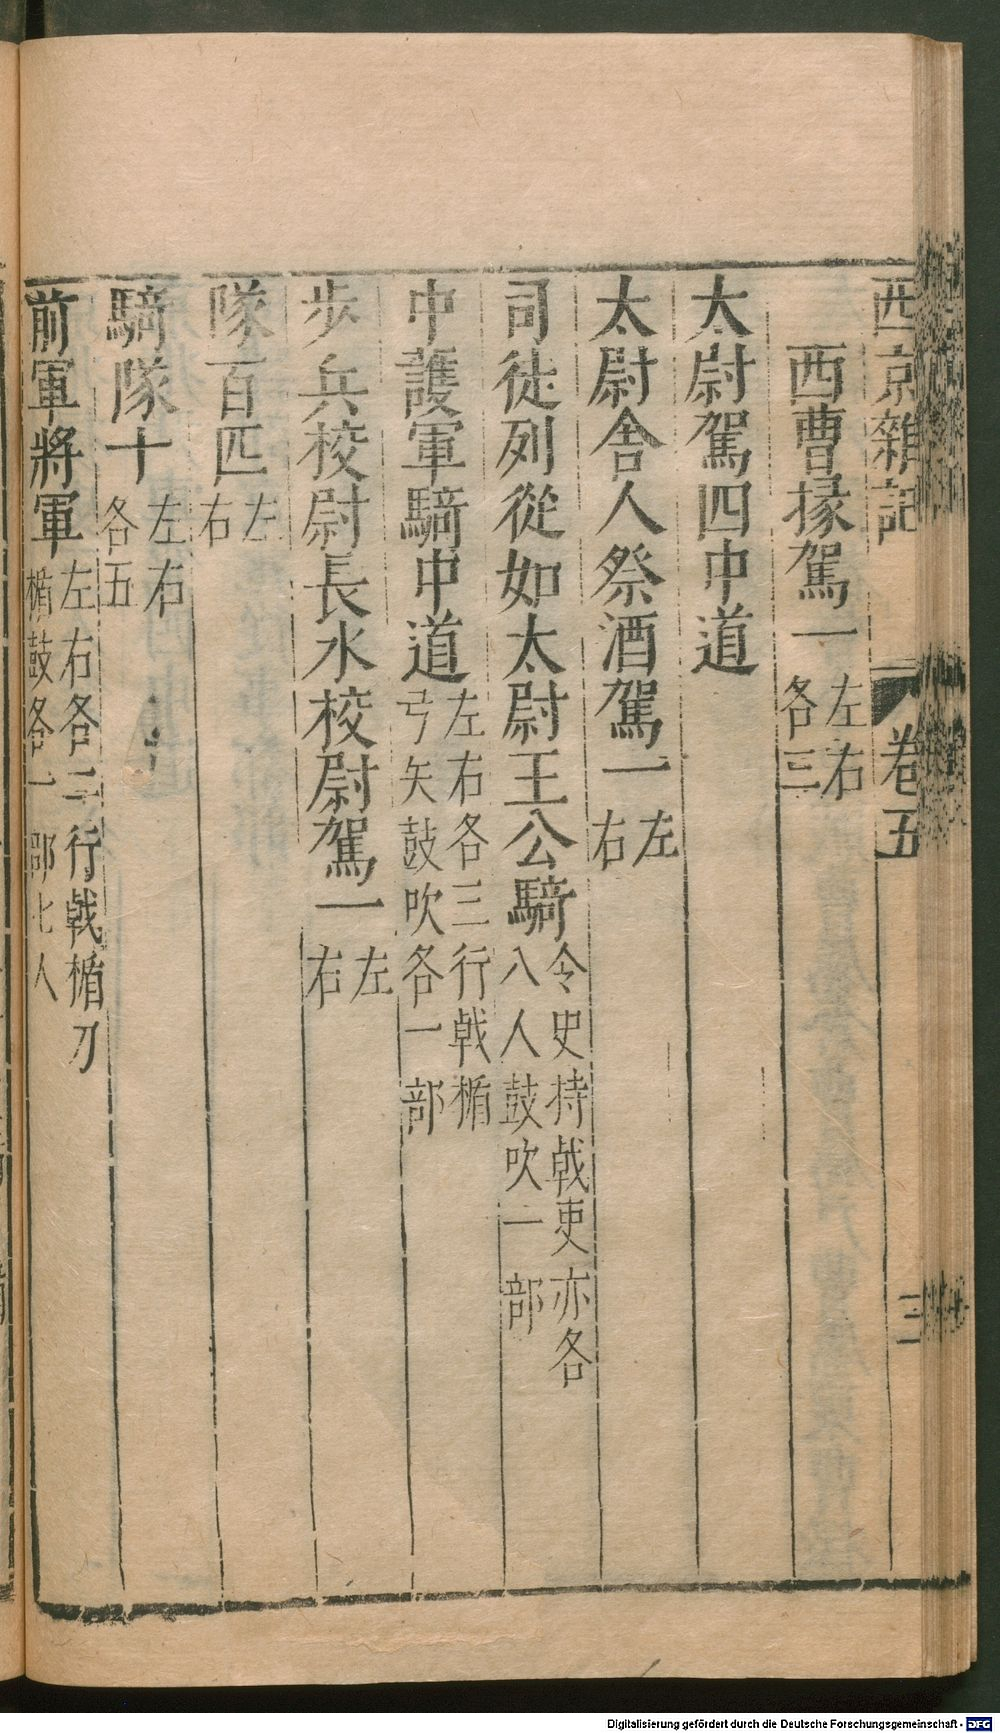 西京雜記 卷五 三
西曹掾駕一左右各三
太尉駕四中道
太尉舍人祭酒駕一左右
司徒列從如太尉王公騎令史持戟吏亦各八人鼓吹一部
中護軍騎中道左右各三行戟楯弓矢鼓吹各一部
步兵校尉長水校尉駕一左右
隊百匹左右
騎隊十左右各五
前軍將軍左右各二行戟楯刀楯鼓各一部七人
Digitalisierung gefördert durch die Deutsche Forschungsgemeinschaft - DFG